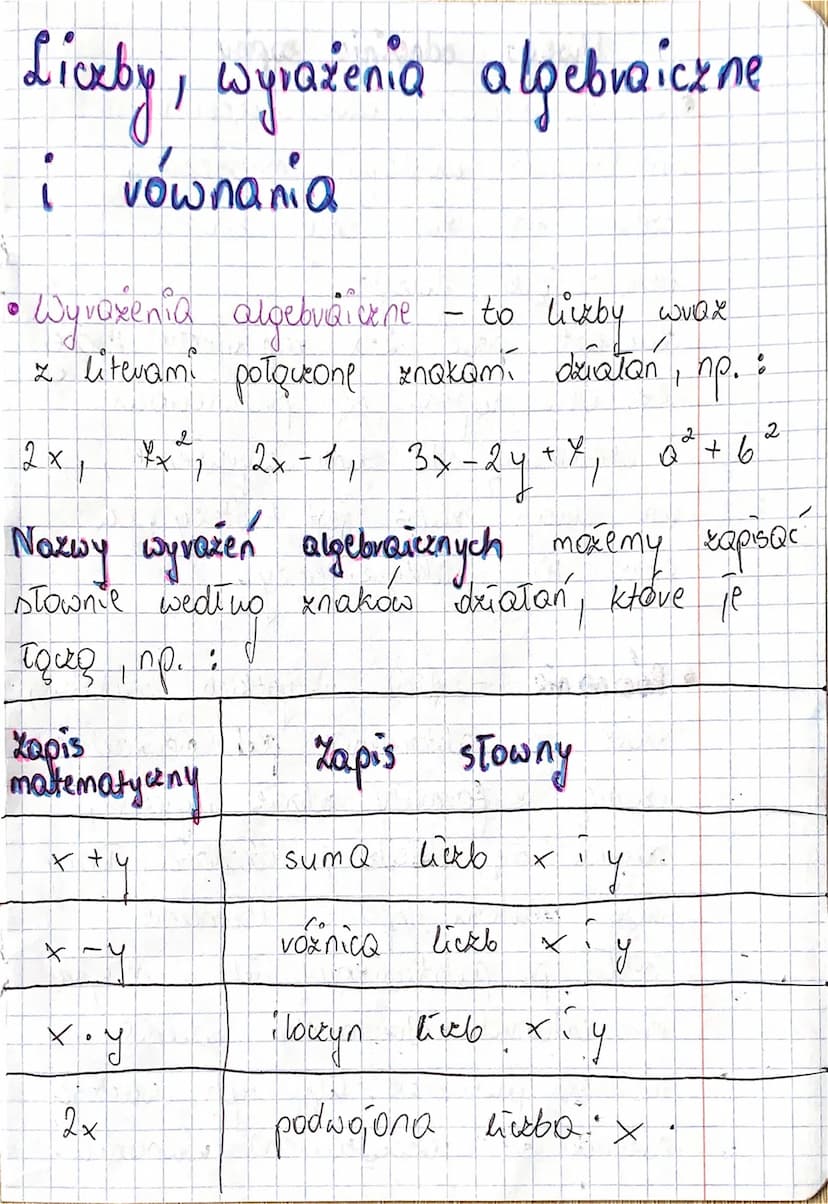 Liczby, wyrażenia algebraiczne
i równania
• Wyrażenia algebraiczne – to liczby wraz
z literami połączone znakami działań, np. :
2x, 7x², 2x - 1, 3x - 2y + 7, a² + b²
Nazwy wyrażeń algebraicznych możemy zapisać
słownie według znaków działań, które je
łączą, np. :
Zapis matematyczny | Zapis słowny
x + y | suma liczb x i y
x - y | różnica liczb x i y
x · y | iloczyn liczb x i y
2x | podwojona liczba x